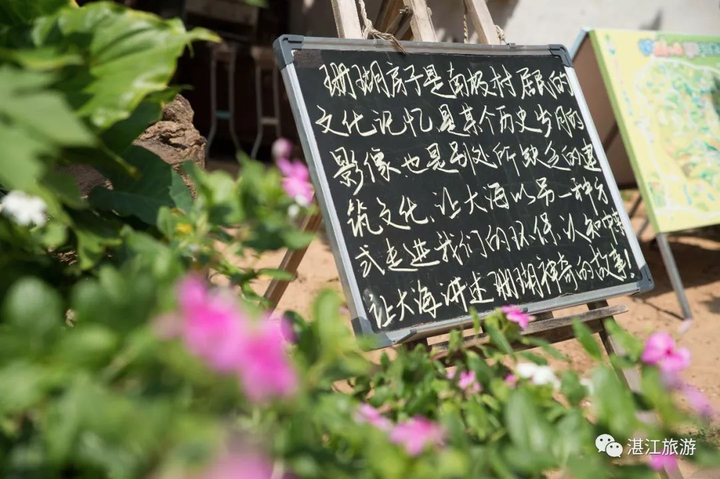 珊瑚房子是南极村居民的
文化记忆是某个历史岁月的
影像也是别处所缺乏的建
筑文化.让大海以另一种方
式走进我们的环保.认知中.
让大海讲述珊瑚神奇的故事!
湛江旅游